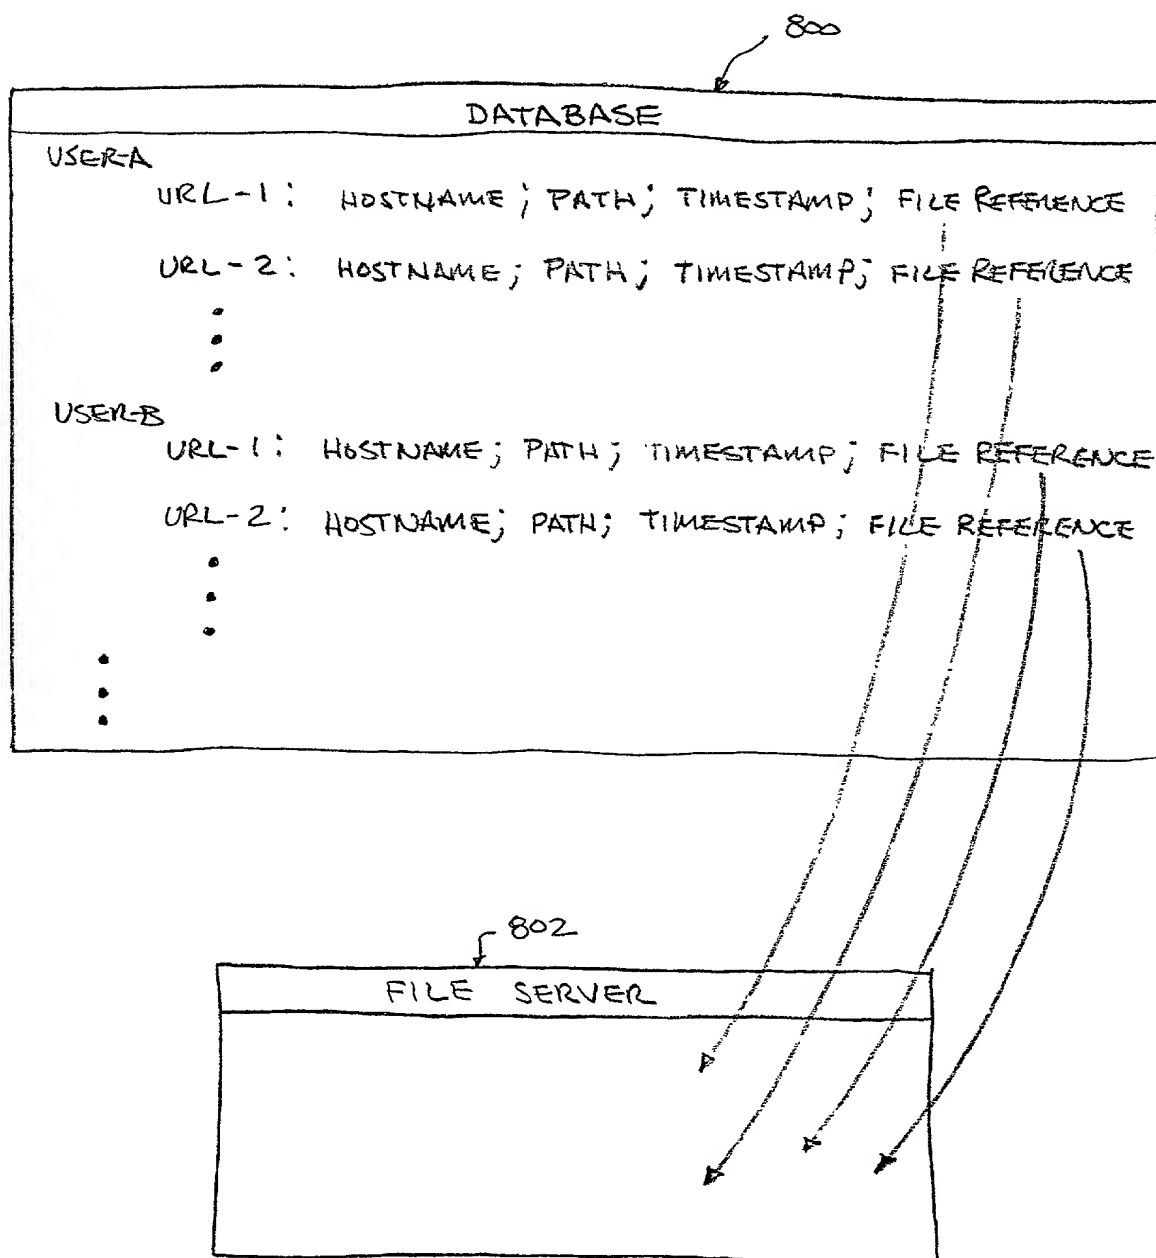 800
DATABASE
USER-A
URL-1: HOSTNAME; PATH; TIMESTAMP; FILE REFERENCE
URL-2: HOSTNAME; PATH; TIMESTAMP; FILE REFERENCE
USER-B
URL-1: HOSTNAME; PATH; TIMESTAMP; FILE REFERENCE
URL-2: HOSTNAME; PATH; TIMESTAMP; FILE REFERENCE
802
FILE SERVER